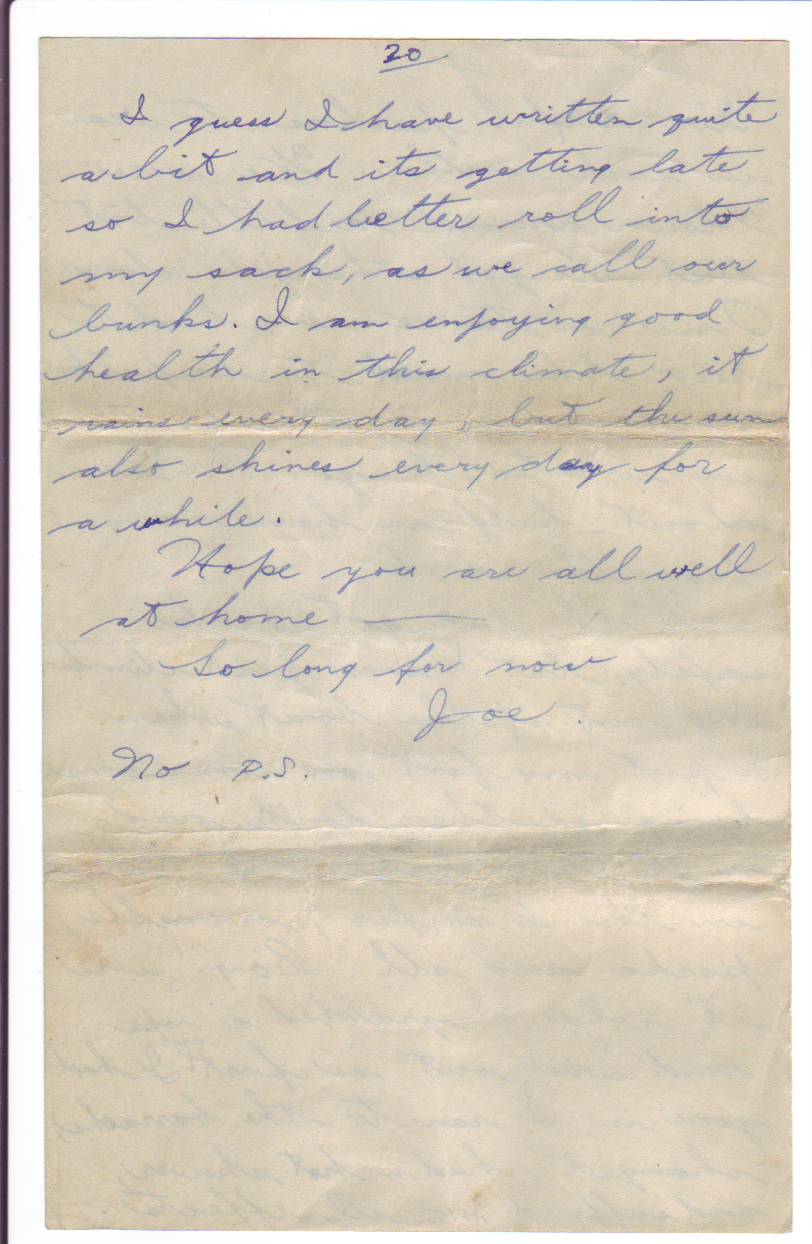 20
I guess I have written quite
a bit and its getting late
so I had better roll into
my sack, as we call our
bunks. I am enjoying good
health in this climate, it
rains every day, but the sun
also shines every day for
a while.
Hope you are all well
at home —
So long for now
Joe.
No P.S.